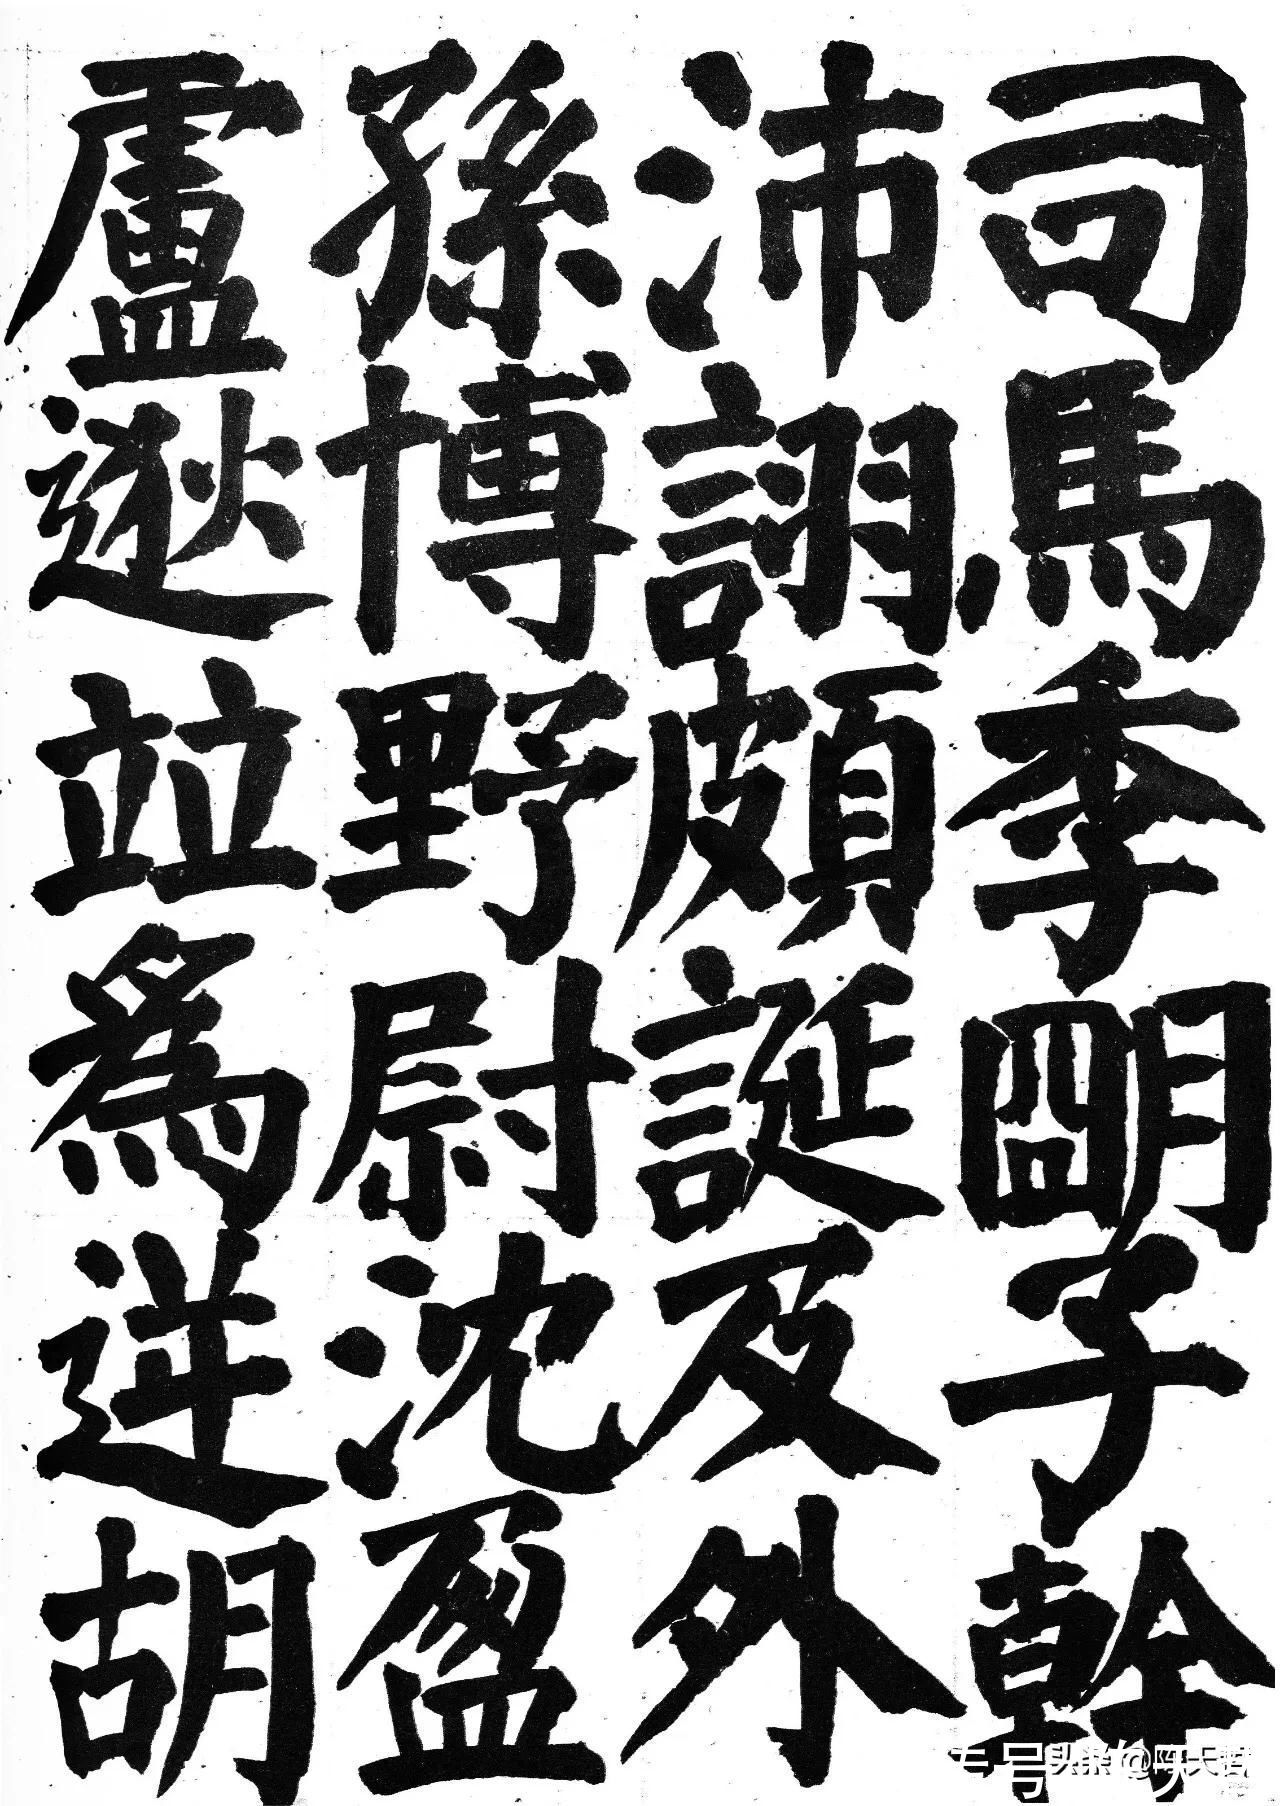 司馬季明子幹
沛詡頗誕及外
孫博野尉沈盈
盧逖並為逆胡
头条@陈天哲